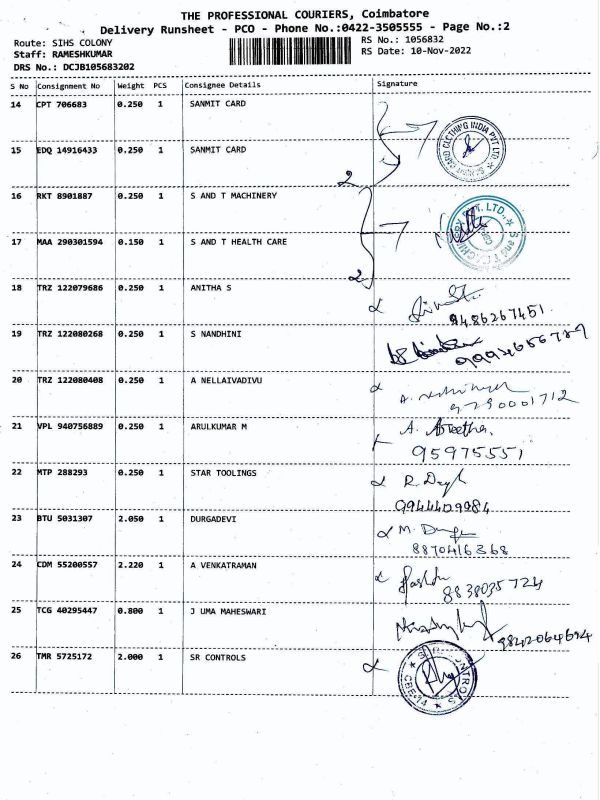 THE PROFESSIONAL COURIERS, Coimbatore
Delivery Runsheet - PCO - Phone No.:0422-3505555 - Page No.:2
Route: SIHS COLONY RS No.: 1056832
Staff: RAMESHKUMAR RS Date: 10-Nov-2022
DRS No.: DCJB105683202
S No Consignment No Weight PCS Consignee Details Signature
14 CPT 706683 0.250 1 SANMIT CARD
15 EDQ 14916433 0.250 1 SANMIT CARD
2
16 RKT 8901887 0.250 1 S AND T MACHINERY
17 MAA 290301594 0.150 1 S AND T HEALTH CARE
2
18 TRZ 122079686 0.250 1 ANITHA S
9486267451
19 TRZ 122080268 0.250 1 S NANDHINI
20 TRZ 122080408 0.250 1 A NELLAIVADIVU
9790001712
21 VPL 940756889 0.250 1 ARULKUMAR M
95975551
22 MTP 288293 0.250 1 STAR TOOLINGS
9944409984
23 BTU 5031307 2.050 1 DURGADEVI
8870416368
24 CDM 55200557 2.220 1 A VENKATRAMAN
8838035724
25 TCG 40295447 0.800 1 J UMA MAHESWARI
9842064694
26 TMR 5725172 2.000 1 SR CONTROLS